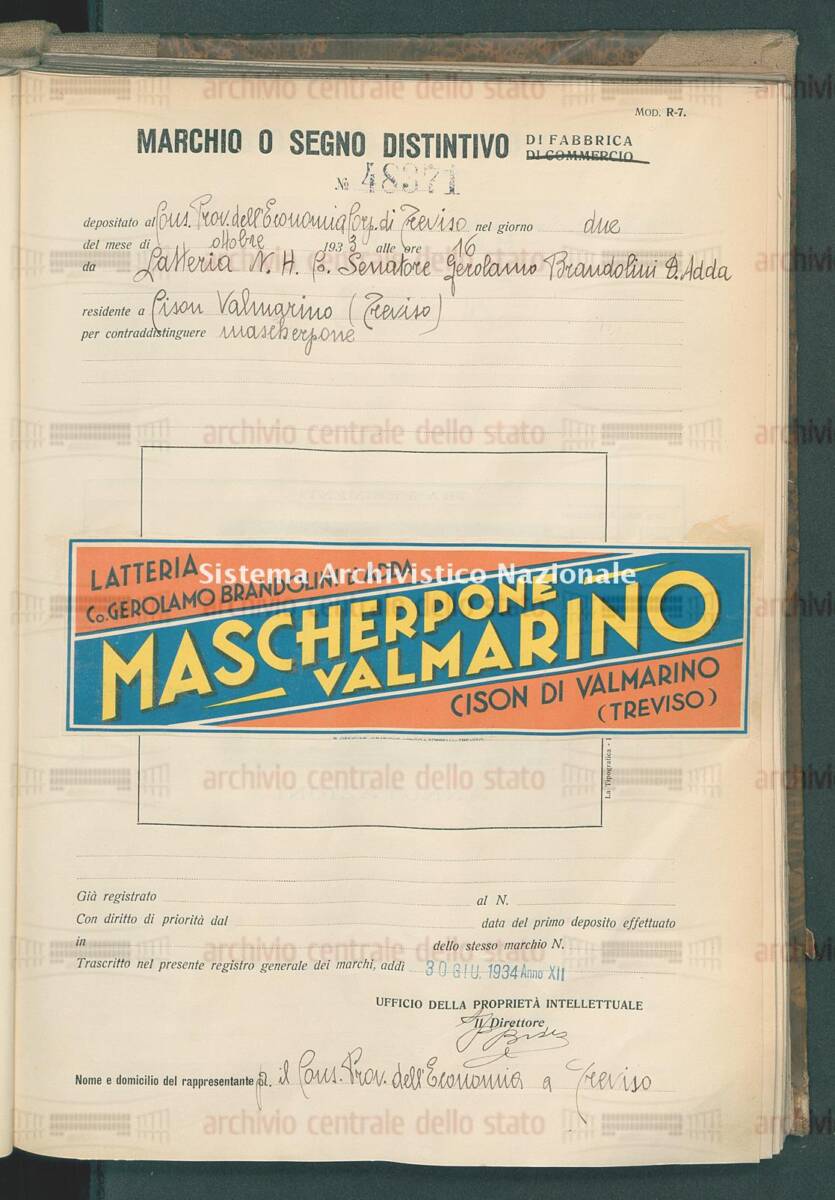 MOD. R-7.
MARCHIO O SEGNO DISTINTIVO DI FABBRICA
DI COMMERCIO
№ 48371
depositato al Cons. Prov. dell'Economia Corp. di Treviso nel giorno due
del mese di ottobre 1933 alle ore 16
da Latteria N. H. Co. Senatore Gerolamo Brandolini D. Adda
residente a Cison Valmarino (Treviso)
per contraddistinguere mascherpone
LATTERIA
Co. GEROLAMO BRANDOLINI D'ADDA
MASCHERPONE
VALMARINO
CISON DI VALMARINO
(TREVISO)
La Tipografica
Già registrato al N.
Con diritto di priorità dal data del primo deposito effettuato
in dello stesso marchio N.
Trascritto nel presente registro generale dei marchi, addì 30 GIU. 1934 Anno XII
UFFICIO DELLA PROPRIETÀ INTELLETTUALE
Il Direttore
Nome e domicilio del rappresentante p. il Cons. Prov. dell'Economia a Treviso
Sistema Archivistico Nazionale
archivio centrale dello stato